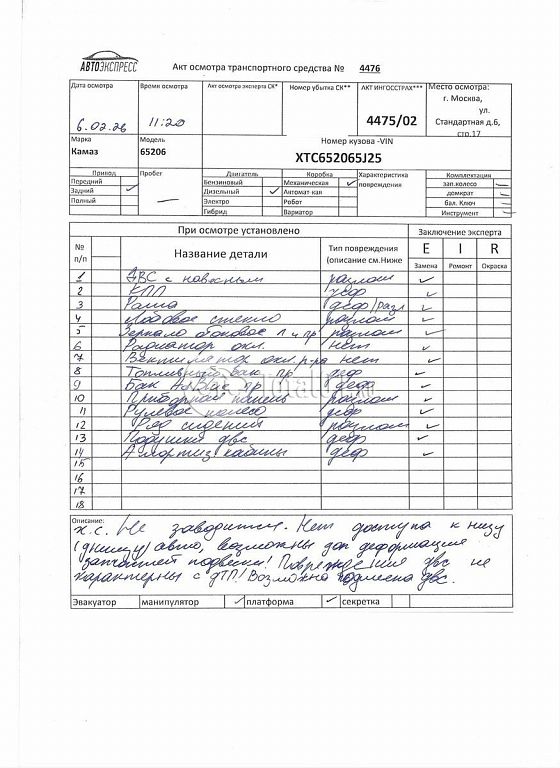 АВТОЭКСПРЕСС
Акт осмотра транспортного средства № 4476
Дата осмотра Время осмотра Акт осмотра эксперта СК* Номер убытка СК** АКТ ИНГОССТРАХ*** Место осмотра:
6.02.26 11:20 4475/02 г. Москва,
ул.
Стандартная д.6,
стр.17
Марка Модель Номер кузова -VIN
Камаз 65206 XTC652065J25
Привод Пробег Двигатель Коробка Характеристика повреждения Комплектация
Передний Бензиновый Механическая ✓ зап.колесо —
Задний ✓ — Дизельный ✓ Автомат-кая домкрат —
Полный Электро Робот бал. Ключ —
Гибрид Вариатор Инструмент —
При осмотре установлено Заключение эксперта
№ п/п Название детали Тип повреждения (описание см.Ниже E I R
Замена Ремонт Окраска
1 ДВС с навесным разлом ✓
2 КПП деф ✓
3 Рама деф/разл ✓
4 Лобовое стекло разлом ✓
5 Зеркало боковое л и пр разлом ✓
6 Радиатор охл. нет ✓
7 Вентилятор охл. р-ра нет ✓
8 Топливный бак пр деф ✓
9 Бак AdBlue пр деф ✓
10 Приборная панель разлом ✓
11 Рулевое колесо деф ✓
12 Ряд сидений разлом ✓
13 Подушки двс деф ✓
14 Амортиз кабины деф ✓
15
16
17
18
Описание:
х.с. Не заводится. Нет доступа к низу
(днищу) авто, возможны доп деформации
запчастей подвески! Повреждения двс не
характерны с ДТП! Возможна подмена двс.
Эвакуатор манипулятор ✓ платформа ✓ секретка